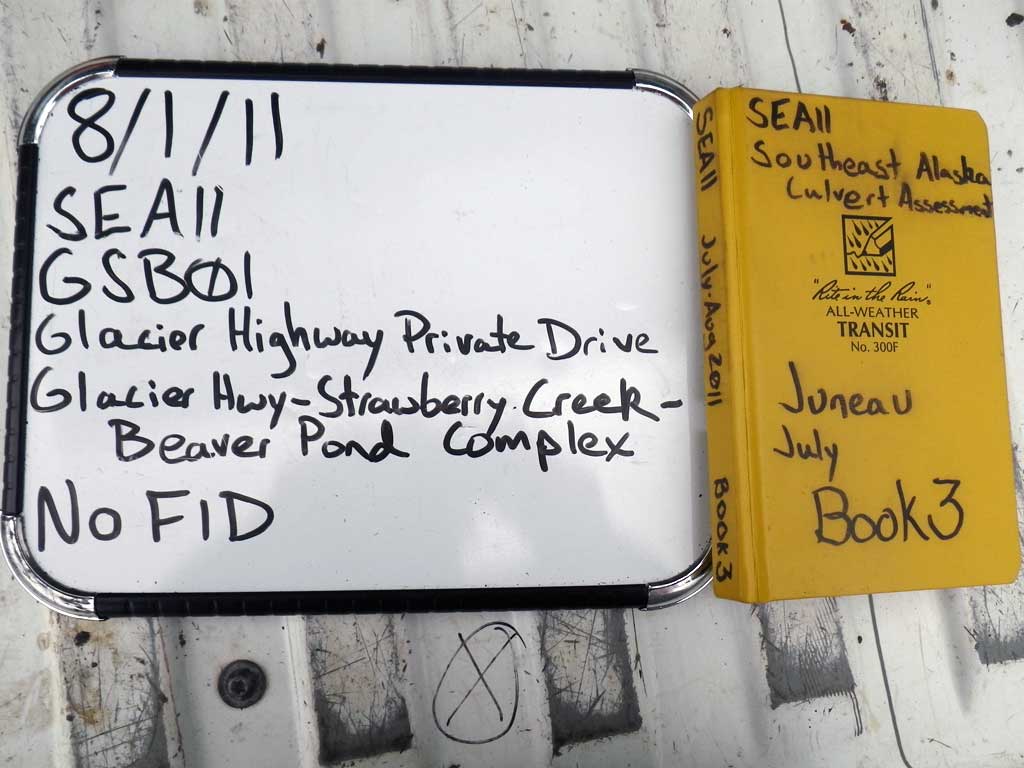 8/1/11
SEA11
GSBØ1
Glacier Highway Private Drive
Glacier Hwy-Strawberry Creek-
Beaver Pond Complex
No FID
SEA11 July-Aug 2011 BOOK 3
SEA11
Southeast Alaska
Culvert Assessment
"Rite in the Rain"®
ALL-WEATHER
TRANSIT
No. 300F
Juneau
July
Book 3